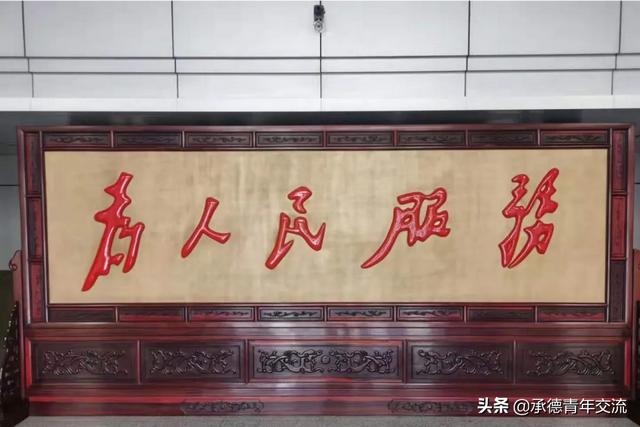 为人民服務
头条 @承德青年交流